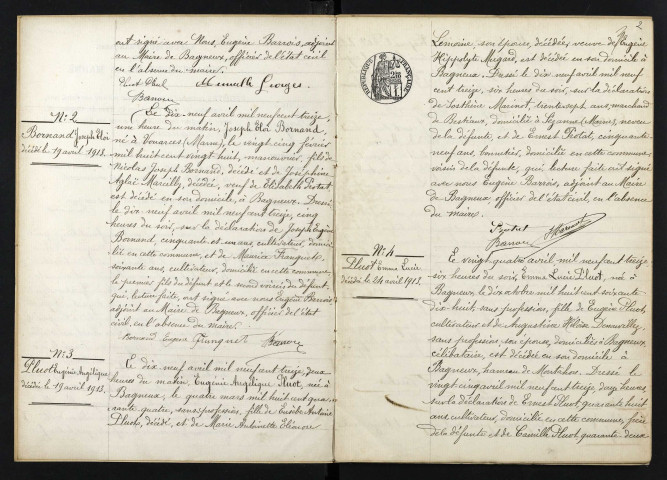 ont signé avec Nous, Eugène Barrois, adjoint
au Maire de Bagneux, officier de l'état civil
en l'absence du maire.
Georges
Barrois
N° 2
Bornand Joseph Eloi
décédé le 19 avril 1913.
Le dix neuf avril mil neuf cent treize,
une heure du matin, Joseph Eloi Bornand,
né à Vouarces (Marne), le vingt cinq février
mil huit cent vingt huit, manouvrier, fils de
Nicolas Joseph Bornand, décédé et de Joséphine
Aglaé Marcilly, décédée, veuf de Elisabeth
est décédé en son domicile, à Bagneux. Dressé
le dix neuf avril mil neuf cent treize, cinq
heures du soir, sur la déclaration de Joseph Eugène
Bornand, cinquante et un ans, cultivateur, domici
lié en cette commune, et de Maurice
soixante ans, cultivateur, domicilié en cette commune
le premier fils du défunt et le second voisin du défunt,
qui, lecture faite, ont signé avec nous Eugène Barrois
adjoint au Maire de Bagneux, officier de l'état
civil, en l'absence du maire.
Bornand Eugène Barrois
N° 3
Pluot Eugénie Angélique
décédée le 19 avril 1913.
Le dix neuf avril mil neuf cent treize, deux
heures du matin, Eugénie Angélique Pluot, née à
Bagneux, le quatre mars mil huit cent qua-
rante quatre, sans profession, fille de Eusèbe Antoine
Pluot, décédé, et de Marie Antoinette Eléonore
2
RÉPUBLIQUE FRANÇAISE
Lemoine, son épouse, décédée, veuve de Eugène
Hippolyte Magard, est décédée en son domicile à
Bagneux. Dressé le dix neuf avril mil neuf
cent treize, six heures du soir, sur la déclaration
de Mariot, trente sept ans, marchand
de Bestiaux, domicilié à Sézanne (Marne), neveu
de la défunte, et de Ernest Protat, cinquante
neuf ans, bonnetier, domicilié en cette commune
voisin de la défunte, qui, lecture faite ont signé
avec nous Eugène Barrois, adjoint au Maire
de Bagneux, officier de l'état civil, en l'absence
du maire.
Protat
Barrois
N° 4
Pluot Emma Lucie
décédée le 24 avril 1913.
Le vingt quatre avril mil neuf cent treize
six heures du soir, Emma Lucie Pluot, née à
Bagneux, le dix octobre mil huit cent soixante
dix huit, sans profession, fille de Eugène Pluot,
cultivateur et de Augustine
sans profession, son épouse, domiciliés à Bagneux,
célibataire, est décédée en son domicile à
Bagneux, hameau de Dressé le
vingt cinq avril mil neuf cent treize, onze heures,
sur la déclaration de Ernest Pluot, quarante huit
ans cultivateur, domicilié en cette commune, frère
de la défunte et de Camille Pluot, quarante deux